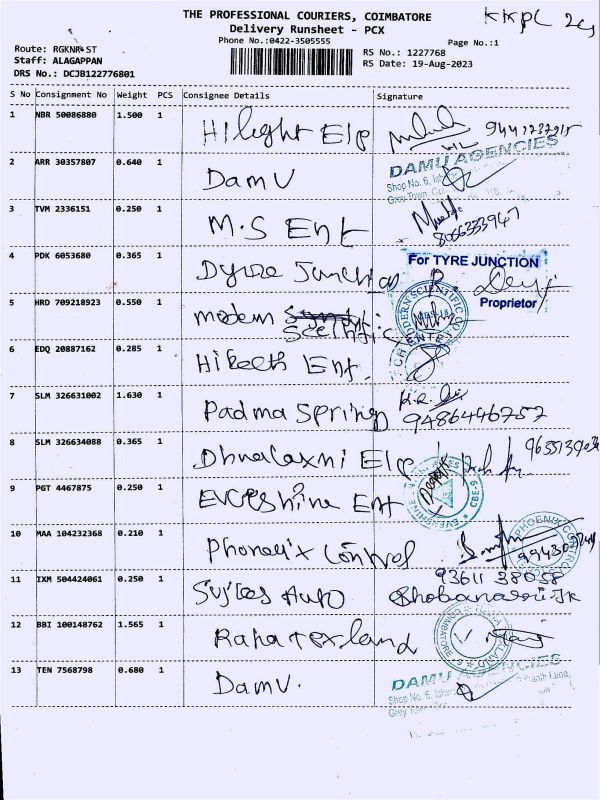 THE PROFESSIONAL COURIERS, COIMBATORE
KKPL
Delivery Runsheet - PCX
Phone No.:0422-3505555
Page No.:1
Route: RGKNR ST
RS No.: 1227768
Staff: ALAGAPPAN
RS Date: 19-Aug-2023
DRS No.: DCJB122776801
S No Consignment No Weight PCS Consignee Details Signature
1 NBR 50086880 1.500 1 Hilight Elp
2 ARR 30357807 0.640 1 Damu
DAMU AGENCIES
Shop No. 6,
3 TVM 2336151 0.250 1 M.S Ent
8056333947
4 PDK 6053680 0.365 1
For TYRE JUNCTION
Proprietor
5 HRD 709218923 0.550 1 modern
6 EDQ 20887162 0.285 1 Ent.
7 SLM 326631002 1.630 1 Padma Spring
9486446757
8 SLM 326634088 0.365 1 Dhnalaxmi Elp
9 PGT 4467875 0.250 1 Evershine Ent
10 MAA 104232368 0.210 1 Phoneix Control
11 IXM 504424061 0.250 1 Auto
93611 38058
12 BBI 100148762 1.565 1
13 TEN 7568798 0.680 1 Damu.
DAMU AGENCIES
Shop No. 6,